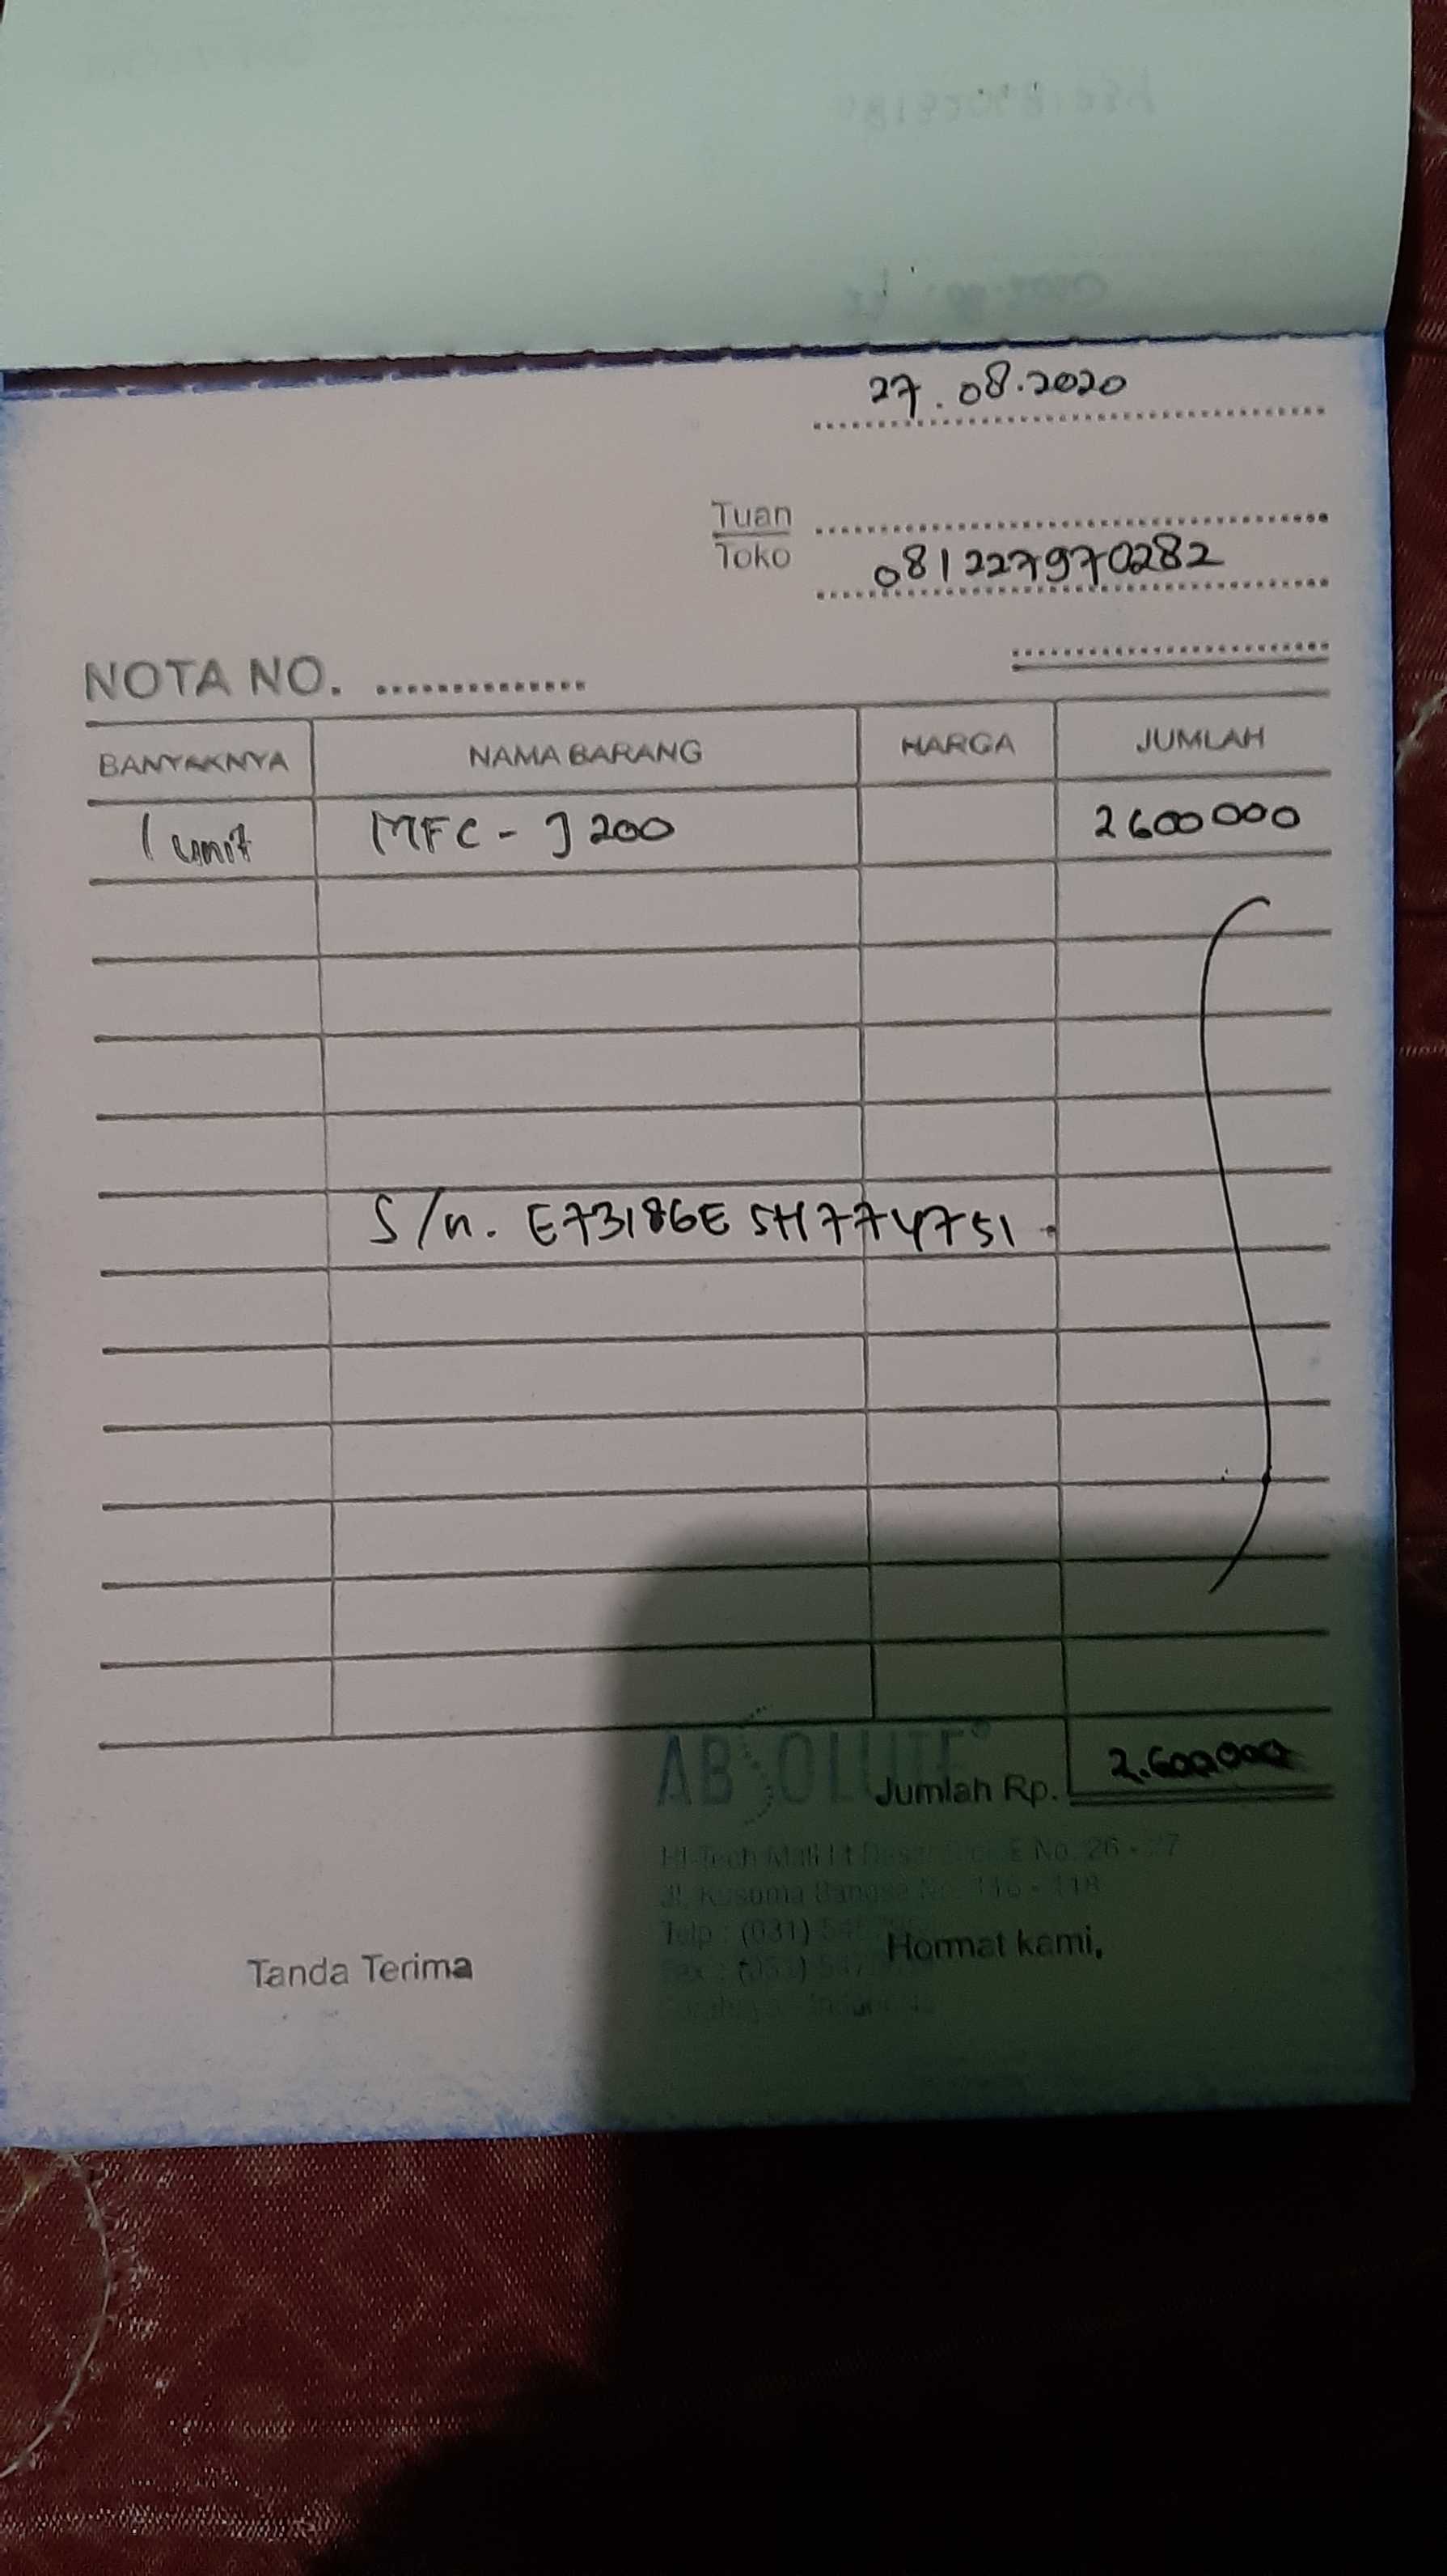 27.08.2020
Tuan
Toko
081227970282
NOTA NO. ...............
BANYAKNYA NAMA BARANG HARGA JUMLAH
1 unit MFC-J200 2600000
S/n. E73186E5H774751.
ABSOLUTE®
Jumlah Rp. 2.600.000
Hi-Tech Mall Lt Dasar E No. 26 - 27
Jl. Kusuma Bangsa No. 116 - 118
Telp : (031)
Tanda Terima Hormat kami,
Fax : (031)